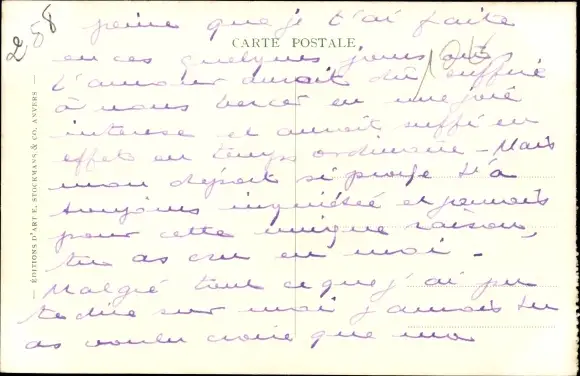 2,58
peine que je t'ai faite
CARTE POSTALE
en ces quelques jours où
l'amour aurait dû suffire
à nous bercer en une joie
intense et aurait suffi en
effet en temps ordinaire - Mais
mon départ si proche t'a
toujours inquiétée et jamais
pour cette unique raison,
tu as cru en moi -
Malgré tout ce que j'ai pu
te dire sur moi jamais tu
as voulu croire que ma
— ÉDITIONS D'ART E. STOCKMANS & CO. ANVERS —